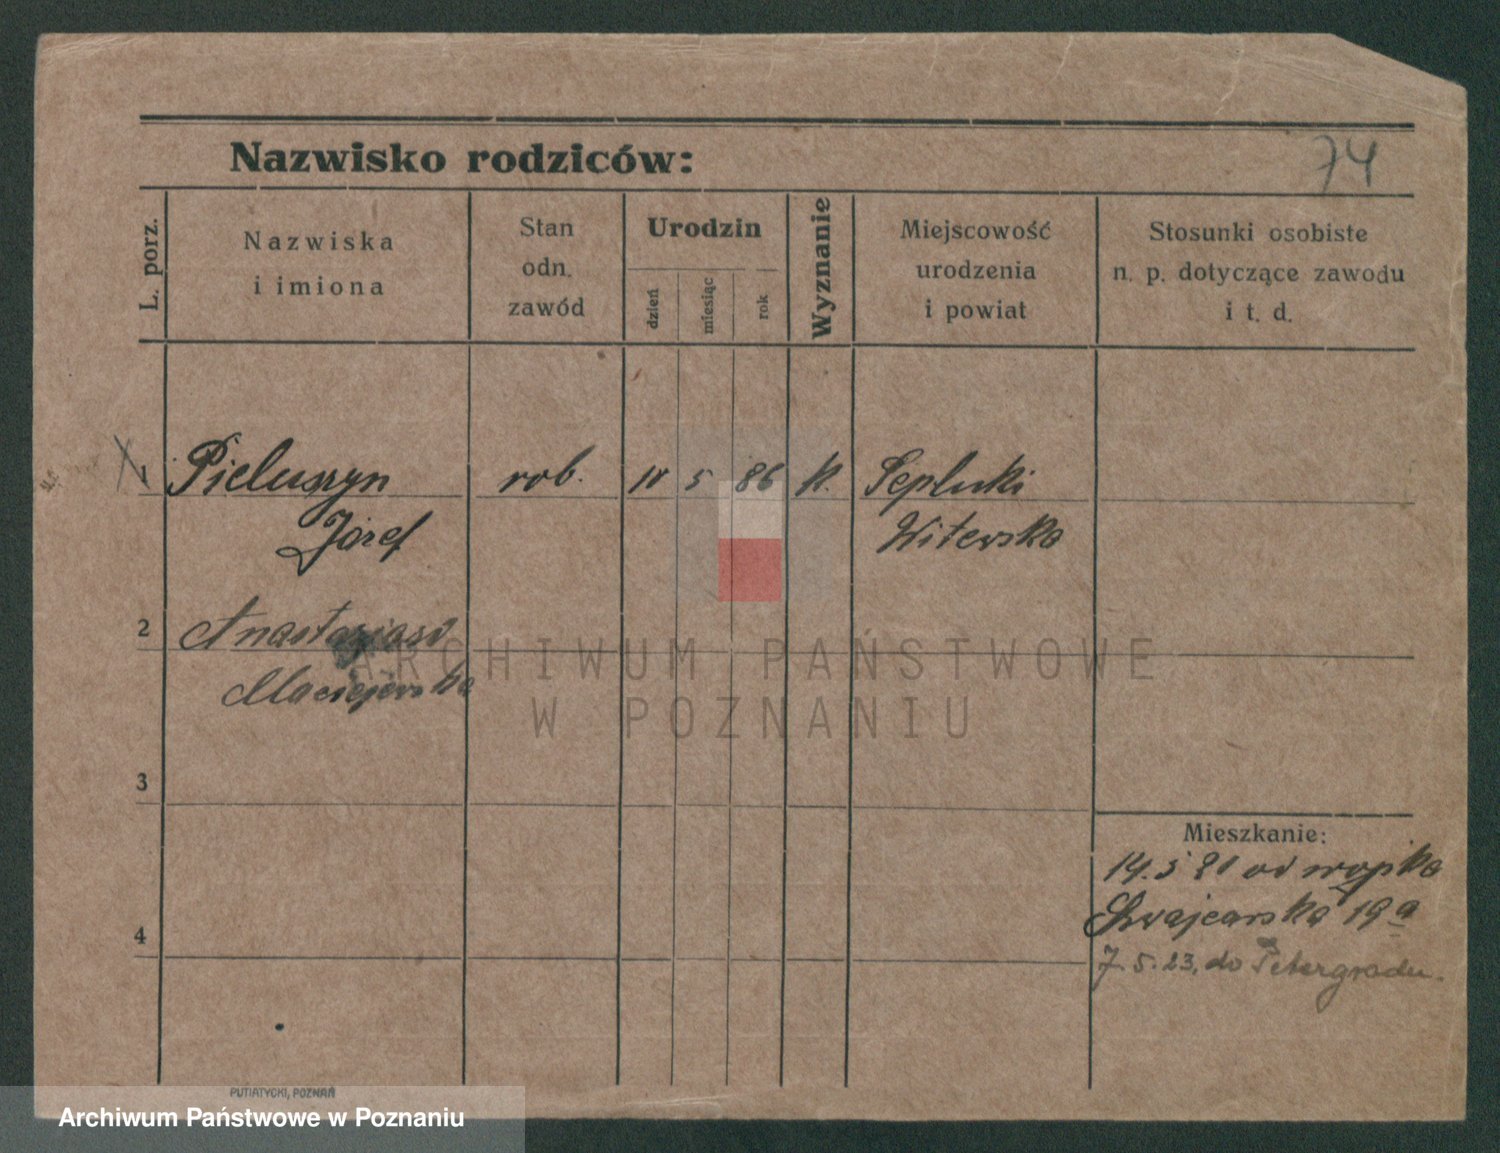 74
Nazwisko rodziców:
L. porz.
Nazwiska
i imiona
Stan
odn.
zawód
Urodzin
dzień
miesiąc
rok
Wyznanie
Miejscowość
urodzenia
i powiat
Stosunki osobiste
n. p. dotyczące zawodu
i t. d.
1 Pieluszyn rob. 5 86 k.
Józef Witewska
2 Anastazja
Maciejewska
3
4
Mieszkanie:
14.5 21 od wojska
Szwajcarska 19 a
7.5.23. do Petersgradu.
ARCHIWUM PAŃSTWOWE
W POZNANIU
PUTIATYCKI, POZNAŃ
Archiwum Państwowe w Poznaniu